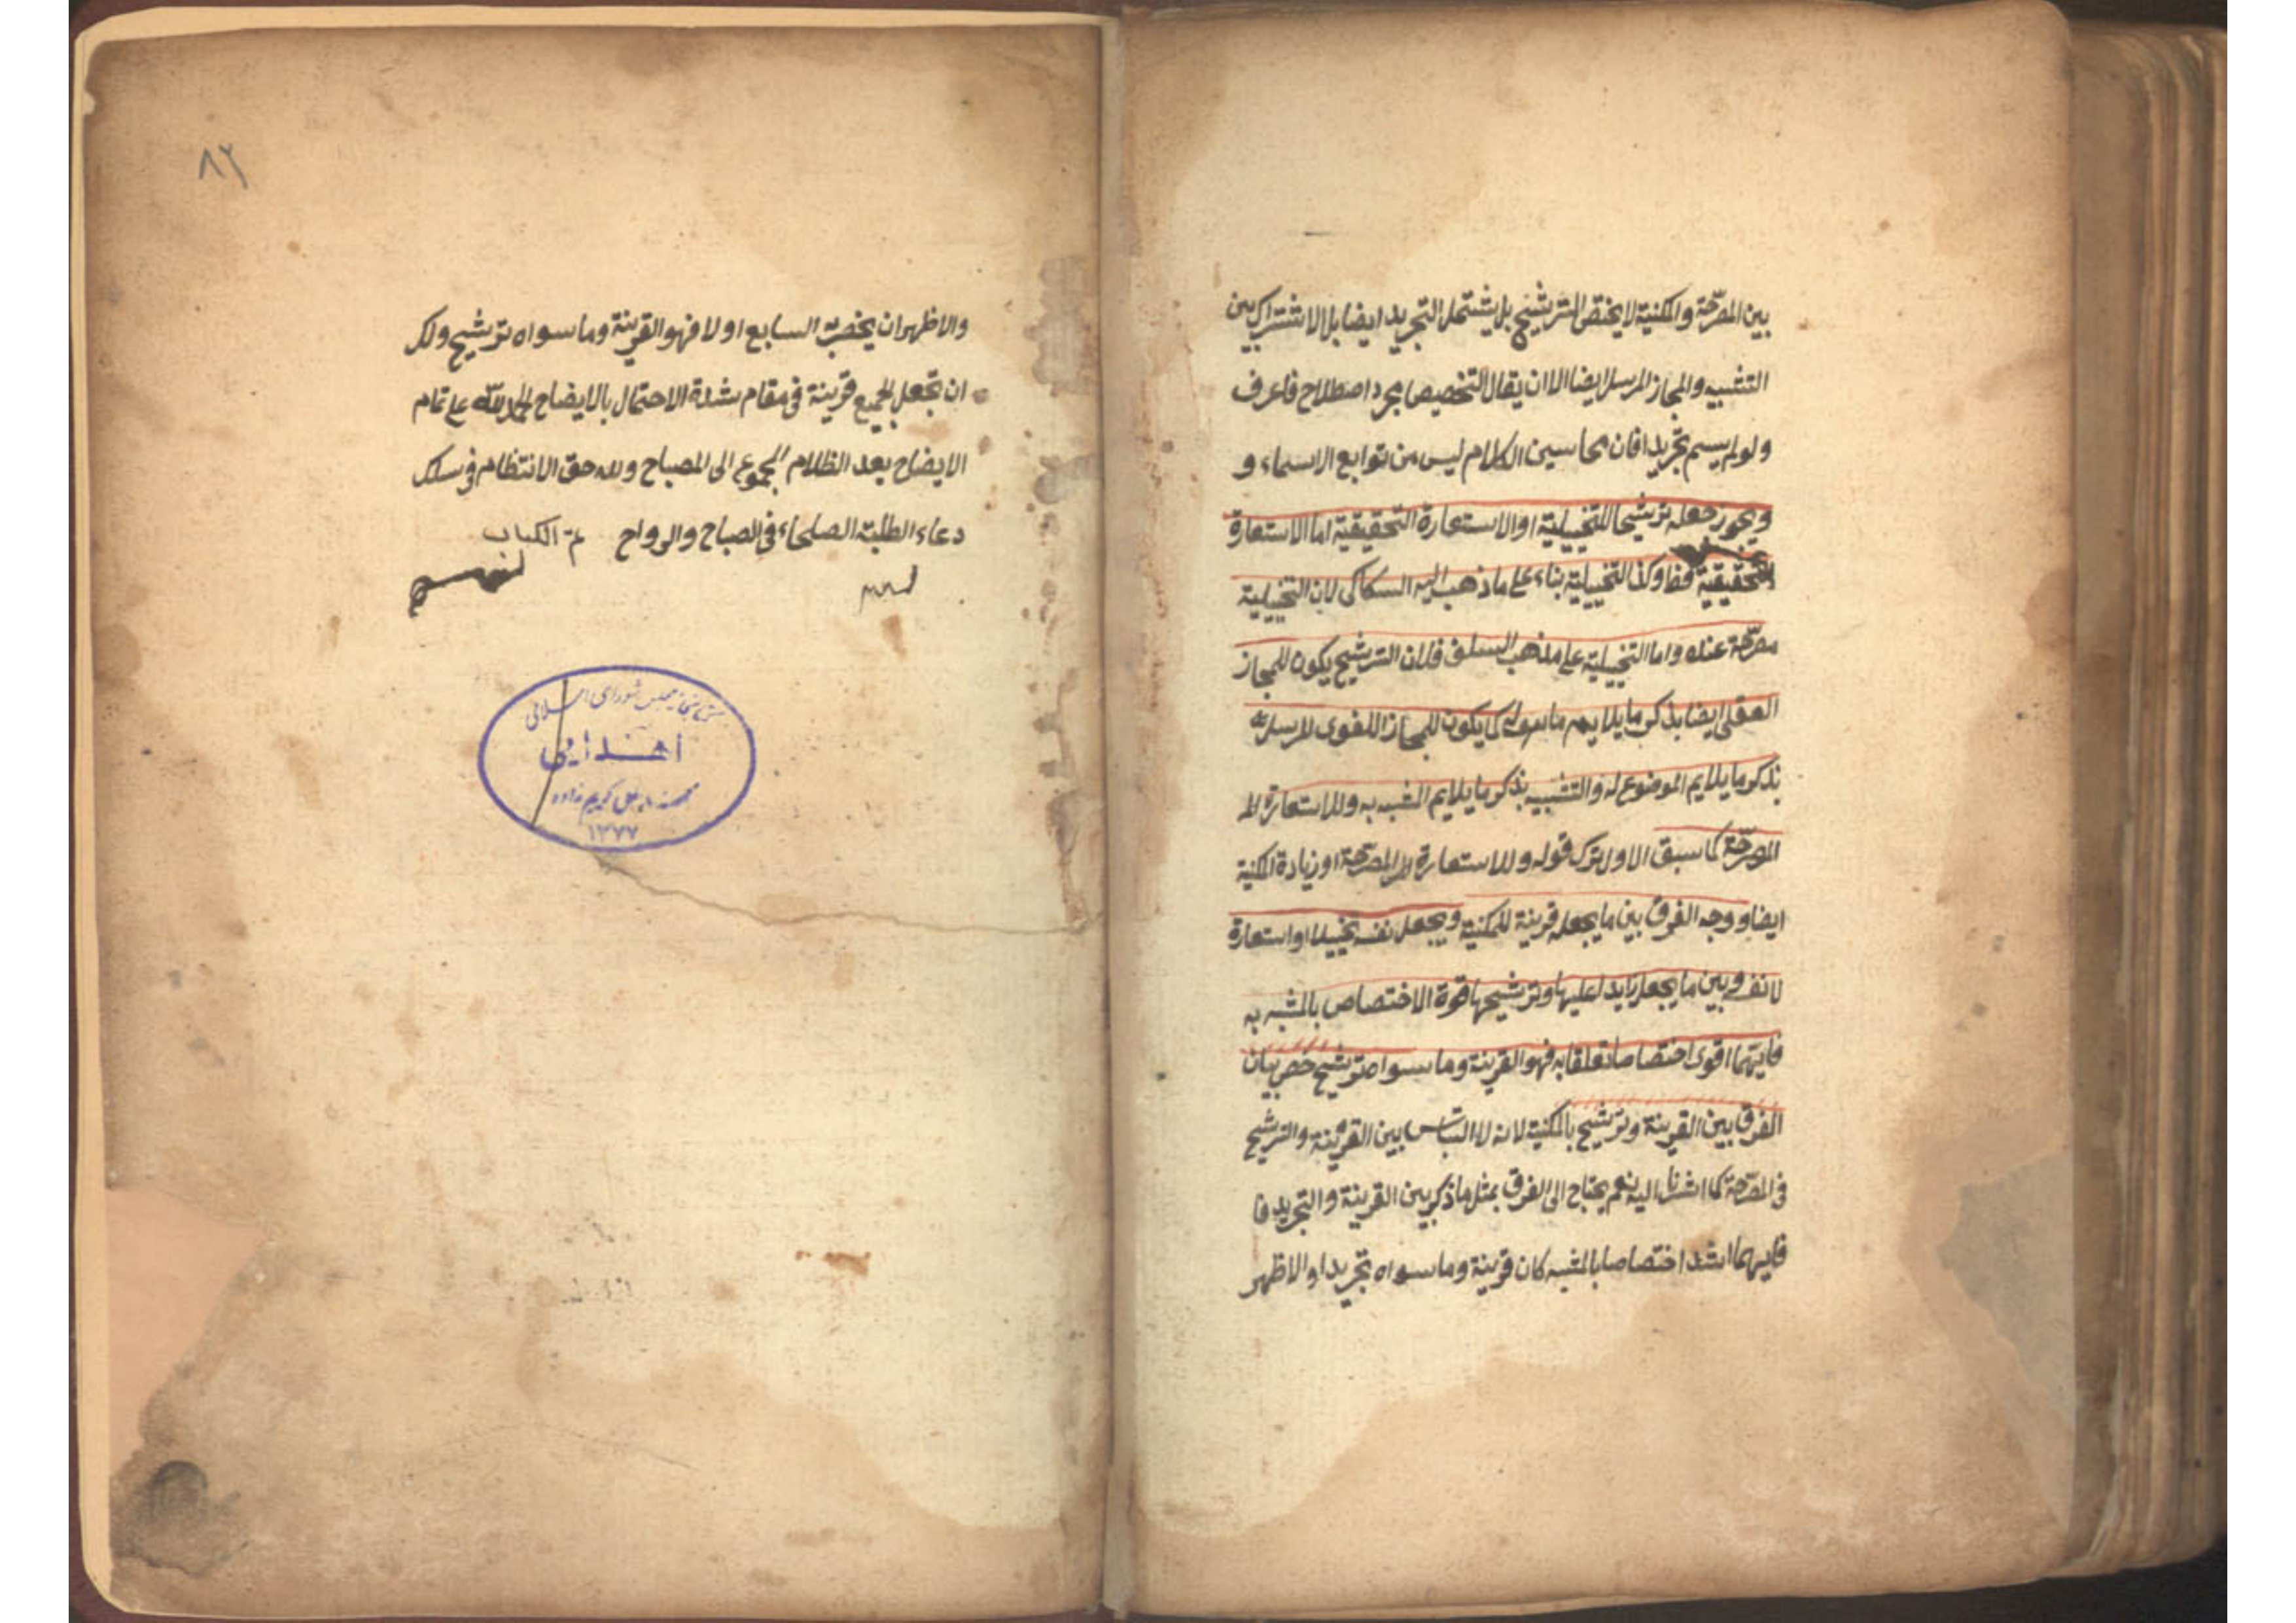 بين المصرّحة والمكنية لا يختص الترشيح بل يشتمل التجريد ايضا بل الاشتراك بين
التشبيه والمجاز المرسل ايضا الا ان يقال التخصيص مجرد اصطلاح فاعرف
ولو لم يسم تجريدا فان محاسين الكلام ليس من توابع الاسماء و
ويجوز جعله ترشيحا للتخييلية او الاستعارة التحقيقية اما الاستعارة
التحقيقية فظ وكذا التخييلية بناء على ما ذهب اليه السكاكى لان التخييلية
مصرّحة عنده واما التخييلية على مذهب السلف فلان الترشيح يكون للمجاز
العقلى ايضا بذكر ما يلايم ما هو له كما يكون للمجاز اللغوى المرسل
بذكر ما يلايم الموضوع له والتشبيه بذكر ما يلايم المشبه به وللاستعارة الم
المصرّحة كما سبق الاول ترك قوله وللاستعارة المصرّحة او زيادة المكنية
ايضا ووجه الفرق بين ما يجعله قرينة للمكنية ويجعل نفسه تخييلا او استعارة
لا نفسه وبين ما يجعل زايدا عليها وترشيحها قوة الاختصاص بالمشبه به
فايهما اقوى اختصاصا وتعلقا به فهو القرينة وما سواه ترشيح خص بيان
الفرق بين القرينة وترشيح بالمكنية لانه لا التباس بين القرينة والترشيح
فى المصرّحة كما اشرنا اليه نعم يحتاج الى الفرق بمثل ما ذكر بين القرينة والتجريد فا
فايهما اشد اختصاصا بالمشبه كان قرينة وما سواه تجريدا والاظهر
٨٢
والاظهر ان يخص به السابع اولا فهو القرينة وما سواه ترشيح ولك
ان تجعل الجميع قرينة فى مقام شدة الاحتمال بالايضاح الحمد لله على تمام
الايضاح بعد الظلام المجموع الى المصباح ولله حق الانتظام فى سلك
دعاء الطلبة الصلحاء فى الصباح والرواح تم الكتاب
كتابخانه مجلس شورای اسلامی
اهدایی
کریم زاده
١٣٧٧